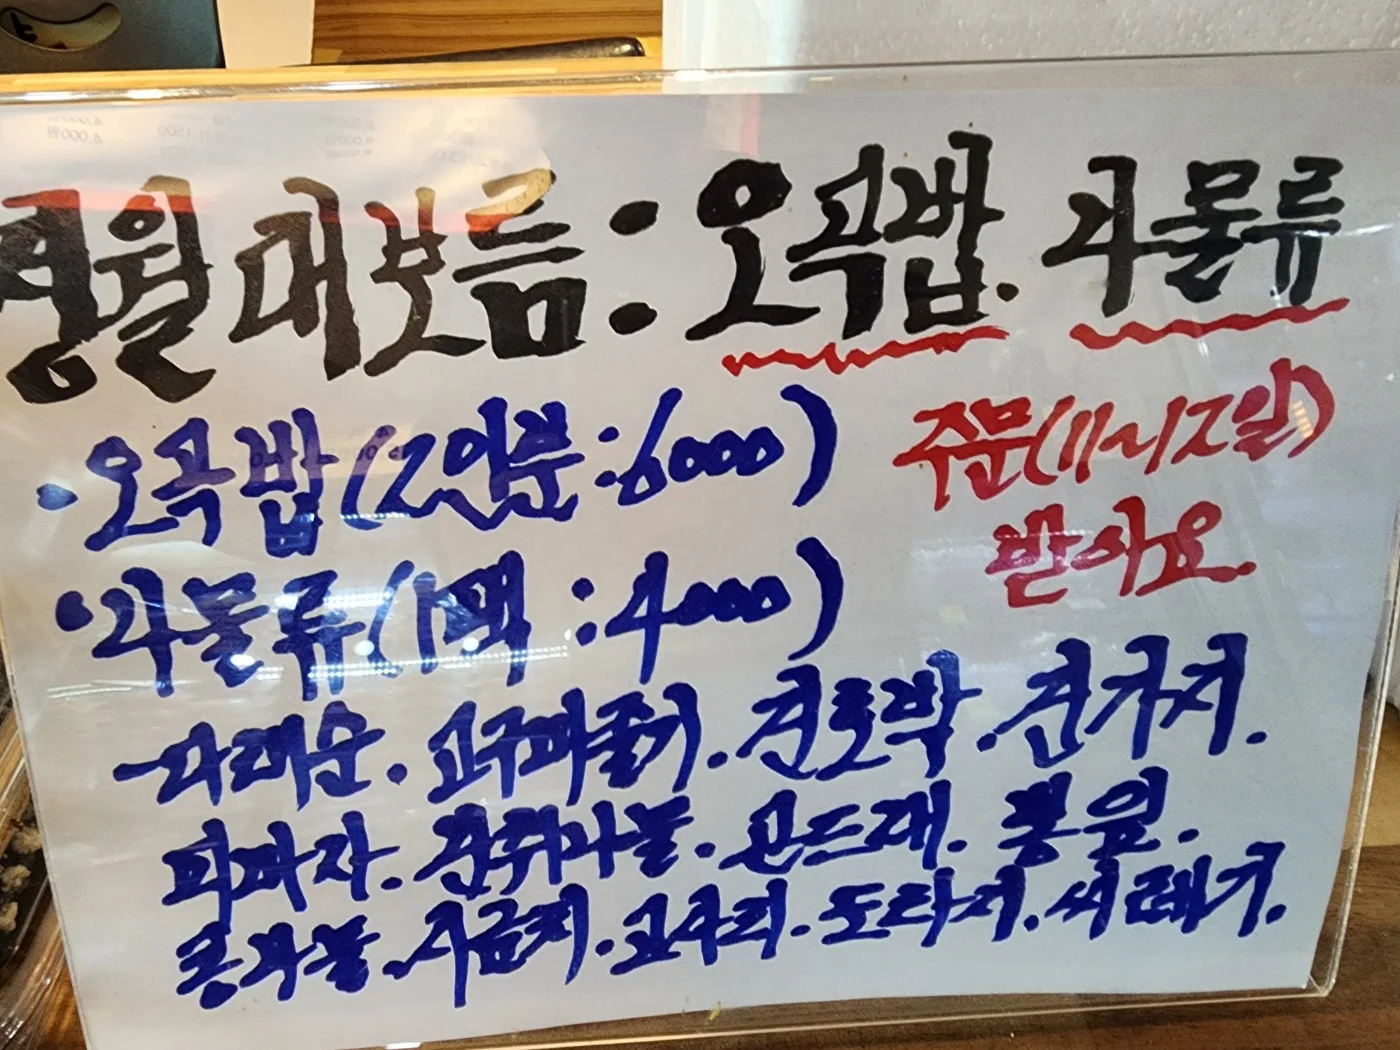 정월대보름: 오곡밥. 나물류
·오곡밥(2인분:6000)
주문(11~12일)
받아요.
·나물류(1팩:4000)
-다래순.고구마줄기.건호박.건가지.
피마자.건취나물.곤드레.뽕잎.
콩나물.시금치.고사리.도라지.씨레기.
4,000원